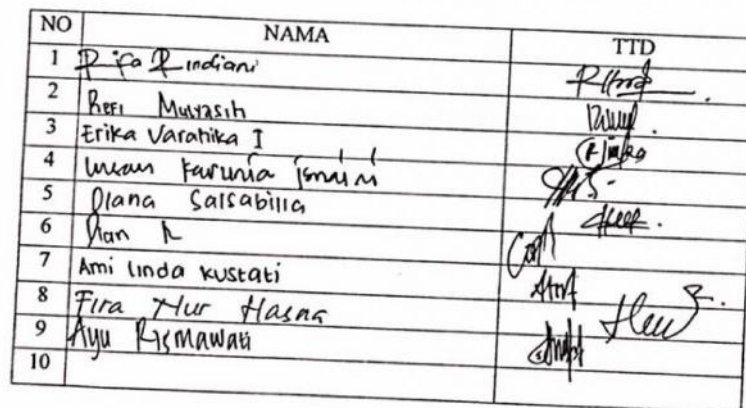 NO NAMA TTD
1 Rifa Rindiani
2 Refi Mulyasih
3 Erika Varanika I
4 Karunia
5 Diana Salsabilla
6 Dian R
7 Ami Linda Kustati
8 Fira Nur Hasna
9 Ayu Rismawati
10